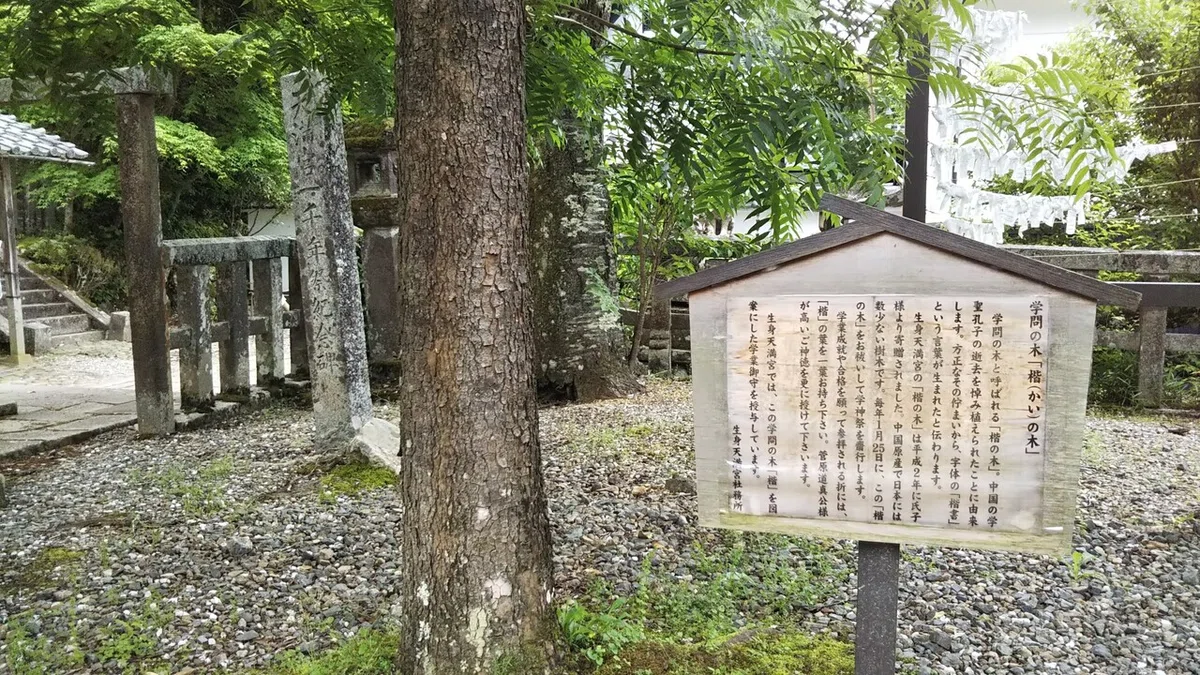 学問の木「楷(かい)の木」
学問の木と呼ばれる「楷の木」。中国の学
聖孔子の逝去を悼み植えられたことに由来
します。方正なその佇まいから、字体の「楷書」
という言葉が生まれたと伝わります。
生身天満宮の「楷の木」は平成２年に氏子
様より寄贈されました。中国原産で日本には
数少ない樹木です。毎年１月25日に、この「楷
の木」をお祓いして学神祭を齋行します。
学業成就や合格を願って参拝される折には、
「楷」の葉を一葉お持ち下さい。菅原道真公様
が高いご神徳を更に授けて下さいます。
生身天満宮では、この学問の木「楷」を図
案にした学業御守を授与しています。
生身天満宮社務所
千年祭